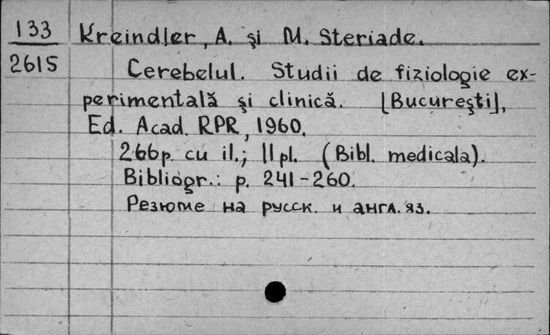 133
2615
Kreindler, A. şi M. Steriade.
Cerebelul. Studii de fiziologie ex-
perimentală şi clinică. [Bucureşti],
Ed. Acad. RPR, 1960.
266p. cu il.; 11pl. (Bibl. medicala).
Bibliogr.: p. 241-260.
Резюме на русск. и англ. яз.